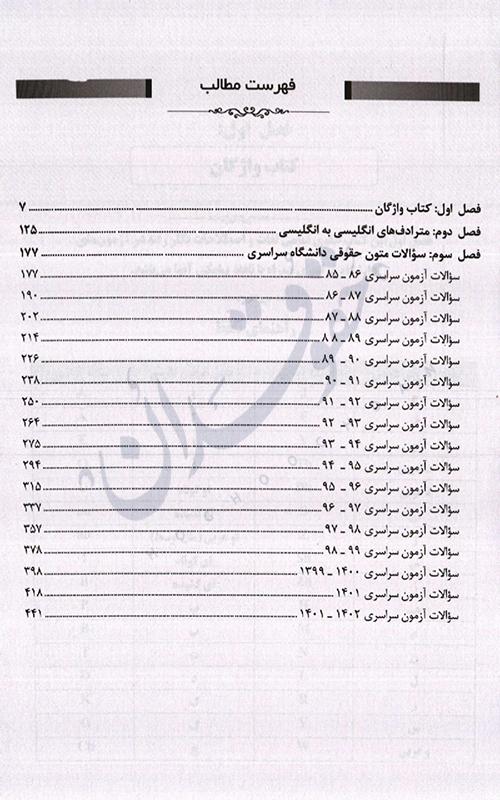 فهرست مطالب
فصل اول: کتاب واژگان ۷
فصل دوم: مترادف‌های انگلیسی به انگلیسی ۱۲۵
فصل سوم: سؤالات متون حقوقی دانشگاه سراسری ۱۷۷
سؤالات آزمون سراسری ۸۶ ـ ۸۵ ۱۷۷
سؤالات آزمون سراسری ۸۷ ـ ۸۶ ۱۹۰
سؤالات آزمون سراسری ۸۸ ـ ۸۷ ۲۰۲
سؤالات آزمون سراسری ۸۹ ـ ۸۸ ۲۱۴
سؤالات آزمون سراسری ۹۰ ـ ۸۹ ۲۲۶
سؤالات آزمون سراسری ۹۱ ـ ۹۰ ۲۳۸
سؤالات آزمون سراسری ۹۲ ـ ۹۱ ۲۵۰
سؤالات آزمون سراسری ۹۳ ـ ۹۲ ۲۶۴
سؤالات آزمون سراسری ۹۴ ـ ۹۳ ۲۷۵
سؤالات آزمون سراسری ۹۵ ـ ۹۴ ۲۹۴
سؤالات آزمون سراسری ۹۶ ـ ۹۵ ۳۱۵
سؤالات آزمون سراسری ۹۷ ـ ۹۶ ۳۳۷
سؤالات آزمون سراسری ۹۸ ـ ۹۷ ۳۵۷
سؤالات آزمون سراسری ۹۹ ـ ۹۸ ۳۷۸
سؤالات آزمون سراسری ۱۴۰۰ ـ ۱۳۹۹ ۳۹۸
سؤالات آزمون سراسری ۱۴۰۱ ۴۱۸
سؤالات آزمون سراسری ۱۴۰۲ ـ ۱۴۰۱ ۴۴۱